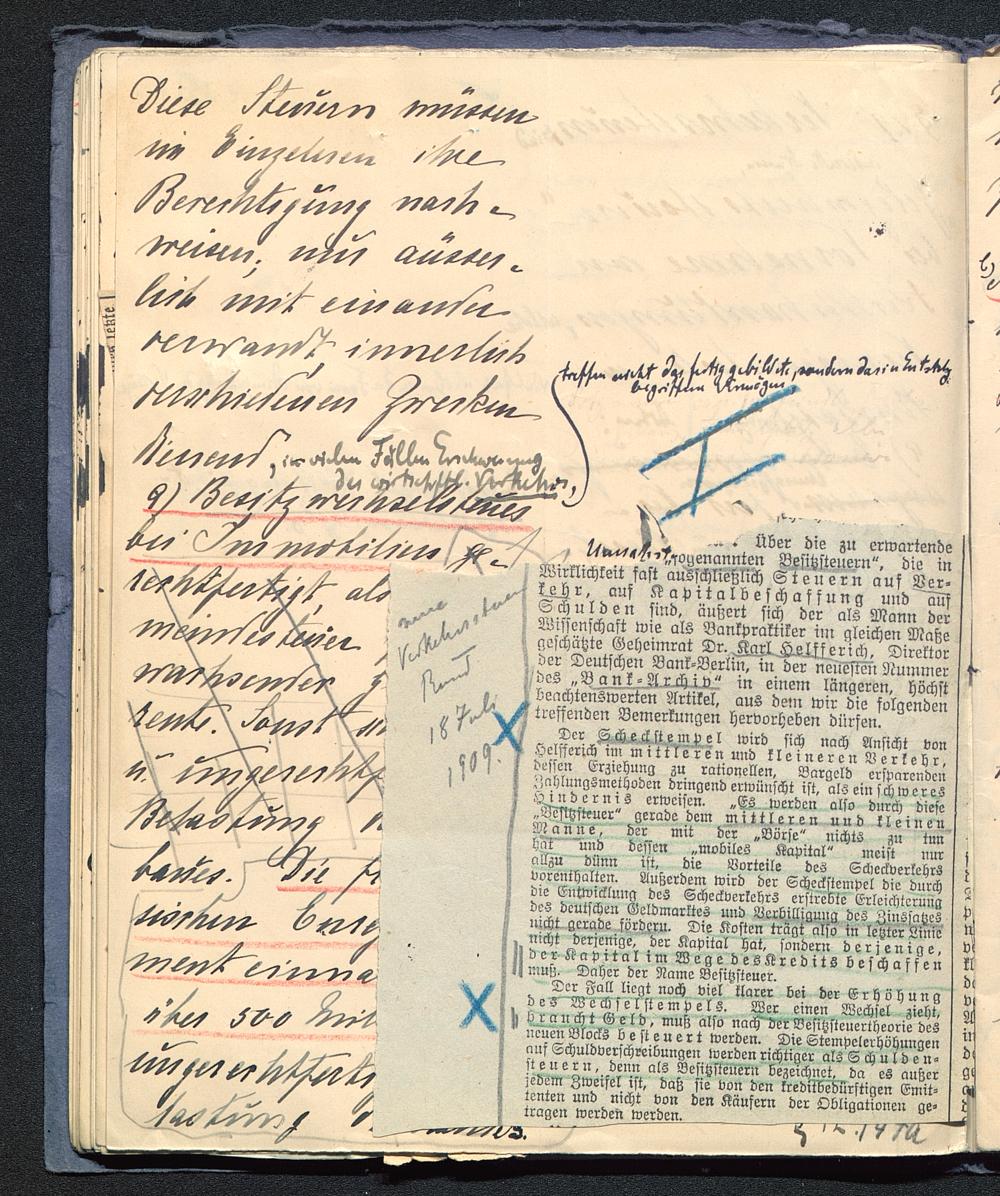 Diese Steuern müssen
im Einzelnen ihre
Berechtigung nach-
weisen, nur äusser-
lich mit einander
verwandt, innerlich
verschiedenen Zwecken
dienend, in vielen Fällen Erschwerung
des wirtschftl. Verkehrs,
treffen nicht das fertig gebildete, sondern das in Entstehg
begriffene Vermögen
a) Besitzwechselsteuer
bei Immobilien ge-
rechtfertigt als
meindesteuer
wachsender
rente. Sonst
u. ungerechtf
Belastung
baues. Die
sischen Enre
ment einna
über 500 Mill
ungerechtfert
lastung
neue
Verkehrssteuern
Bund
18 Juli
1909.
X
X
I
Über die zu erwartende
„sogenannten Besitzsteuern“, die in
Wirklichkeit fast ausschließlich Steuern auf Ver-
kehr, auf Kapitalbeschaffung und auf
Schulden sind, äußert sich der als Mann der
Wissenschaft wie als Bankpraktiker im gleichen Maße
geschätzte Geheimrat Dr. Karl Helfferich, Direktor
der Deutschen Bank-Berlin, in der neuesten Nummer
des „Bank-Archiv“ in einem längeren, höchst
beachtenswerten Artikel, aus dem wir die folgenden
treffenden Bemerkungen hervorheben dürfen.
Der Scheckstempel wird sich nach Ansicht von
Helfferich im mittleren und kleineren Verkehr,
dessen Erziehung zu rationellen, Bargeld ersparenden
Zahlungsmethoden dringend erwünscht ist, als ein schweres
Hindernis erweisen. „Es werden also durch diese
„Besitzsteuer“ gerade dem mittleren und kleinen
Manne, der mit der „Börse“ nichts zu tun
hat und dessen „mobiles Kapital“ meist nur
allzu dünn ist, die Vorteile des Scheckverkehrs
vorenthalten. Außerdem wird der Scheckstempel die durch
die Entwicklung des Scheckverkehrs erstrebte Erleichterung
des deutschen Geldmarktes und Verbilligung des Zinssatzes
nicht gerade fördern. Die Kosten trägt also in letzter Linie
nicht derjenige, der Kapital hat, sondern derjenige,
der Kapital im Wege des Kredits beschaffen
muß. Daher der Name Besitzsteuer.
Der Fall liegt noch viel klarer bei der Erhöhung
des Wechselstempels. Wer einen Wechsel zieht,
braucht Geld, muß also nach der Besitzsteuertheorie des
neuen Blocks besteuert werden. Die Stempelerhöhungen
auf Schuldverschreibungen werden richtiger als Schulden-
steuern, denn als Besitzsteuern bezeichnet, da es außer
jedem Zweifel ist, daß sie von den kreditbedürftigen Emit-
tenten und nicht von den Käufern der Obligationen ge-
tragen werden werden.